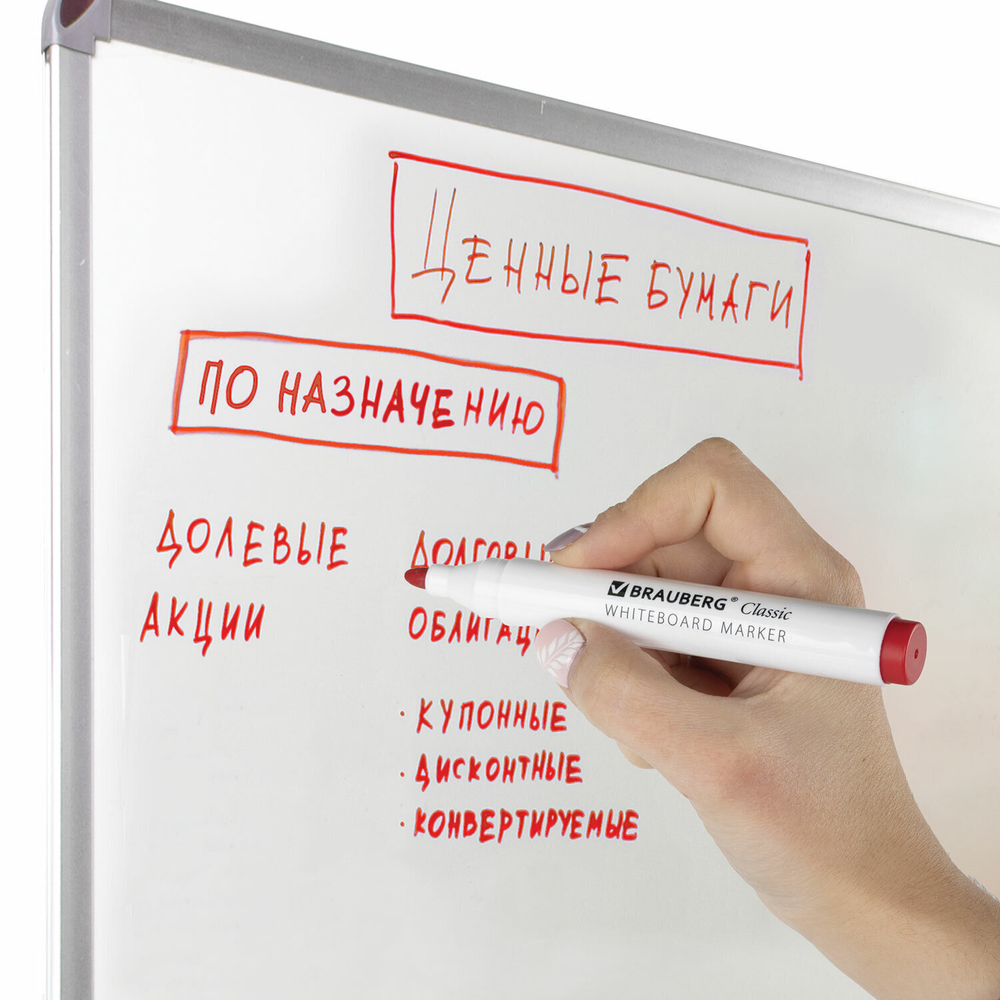 ЦЕННЫЕ БУМАГИ
ПО НАЗНАЧЕНИЮ
ДОЛЕВЫЕ
АКЦИИ
· КУПОННЫЕ
· ДИСКОНТНЫЕ
· КОНВЕРТИРУЕМЫЕ
BRAUBERG® Classic
WHITEBOARD MARKER